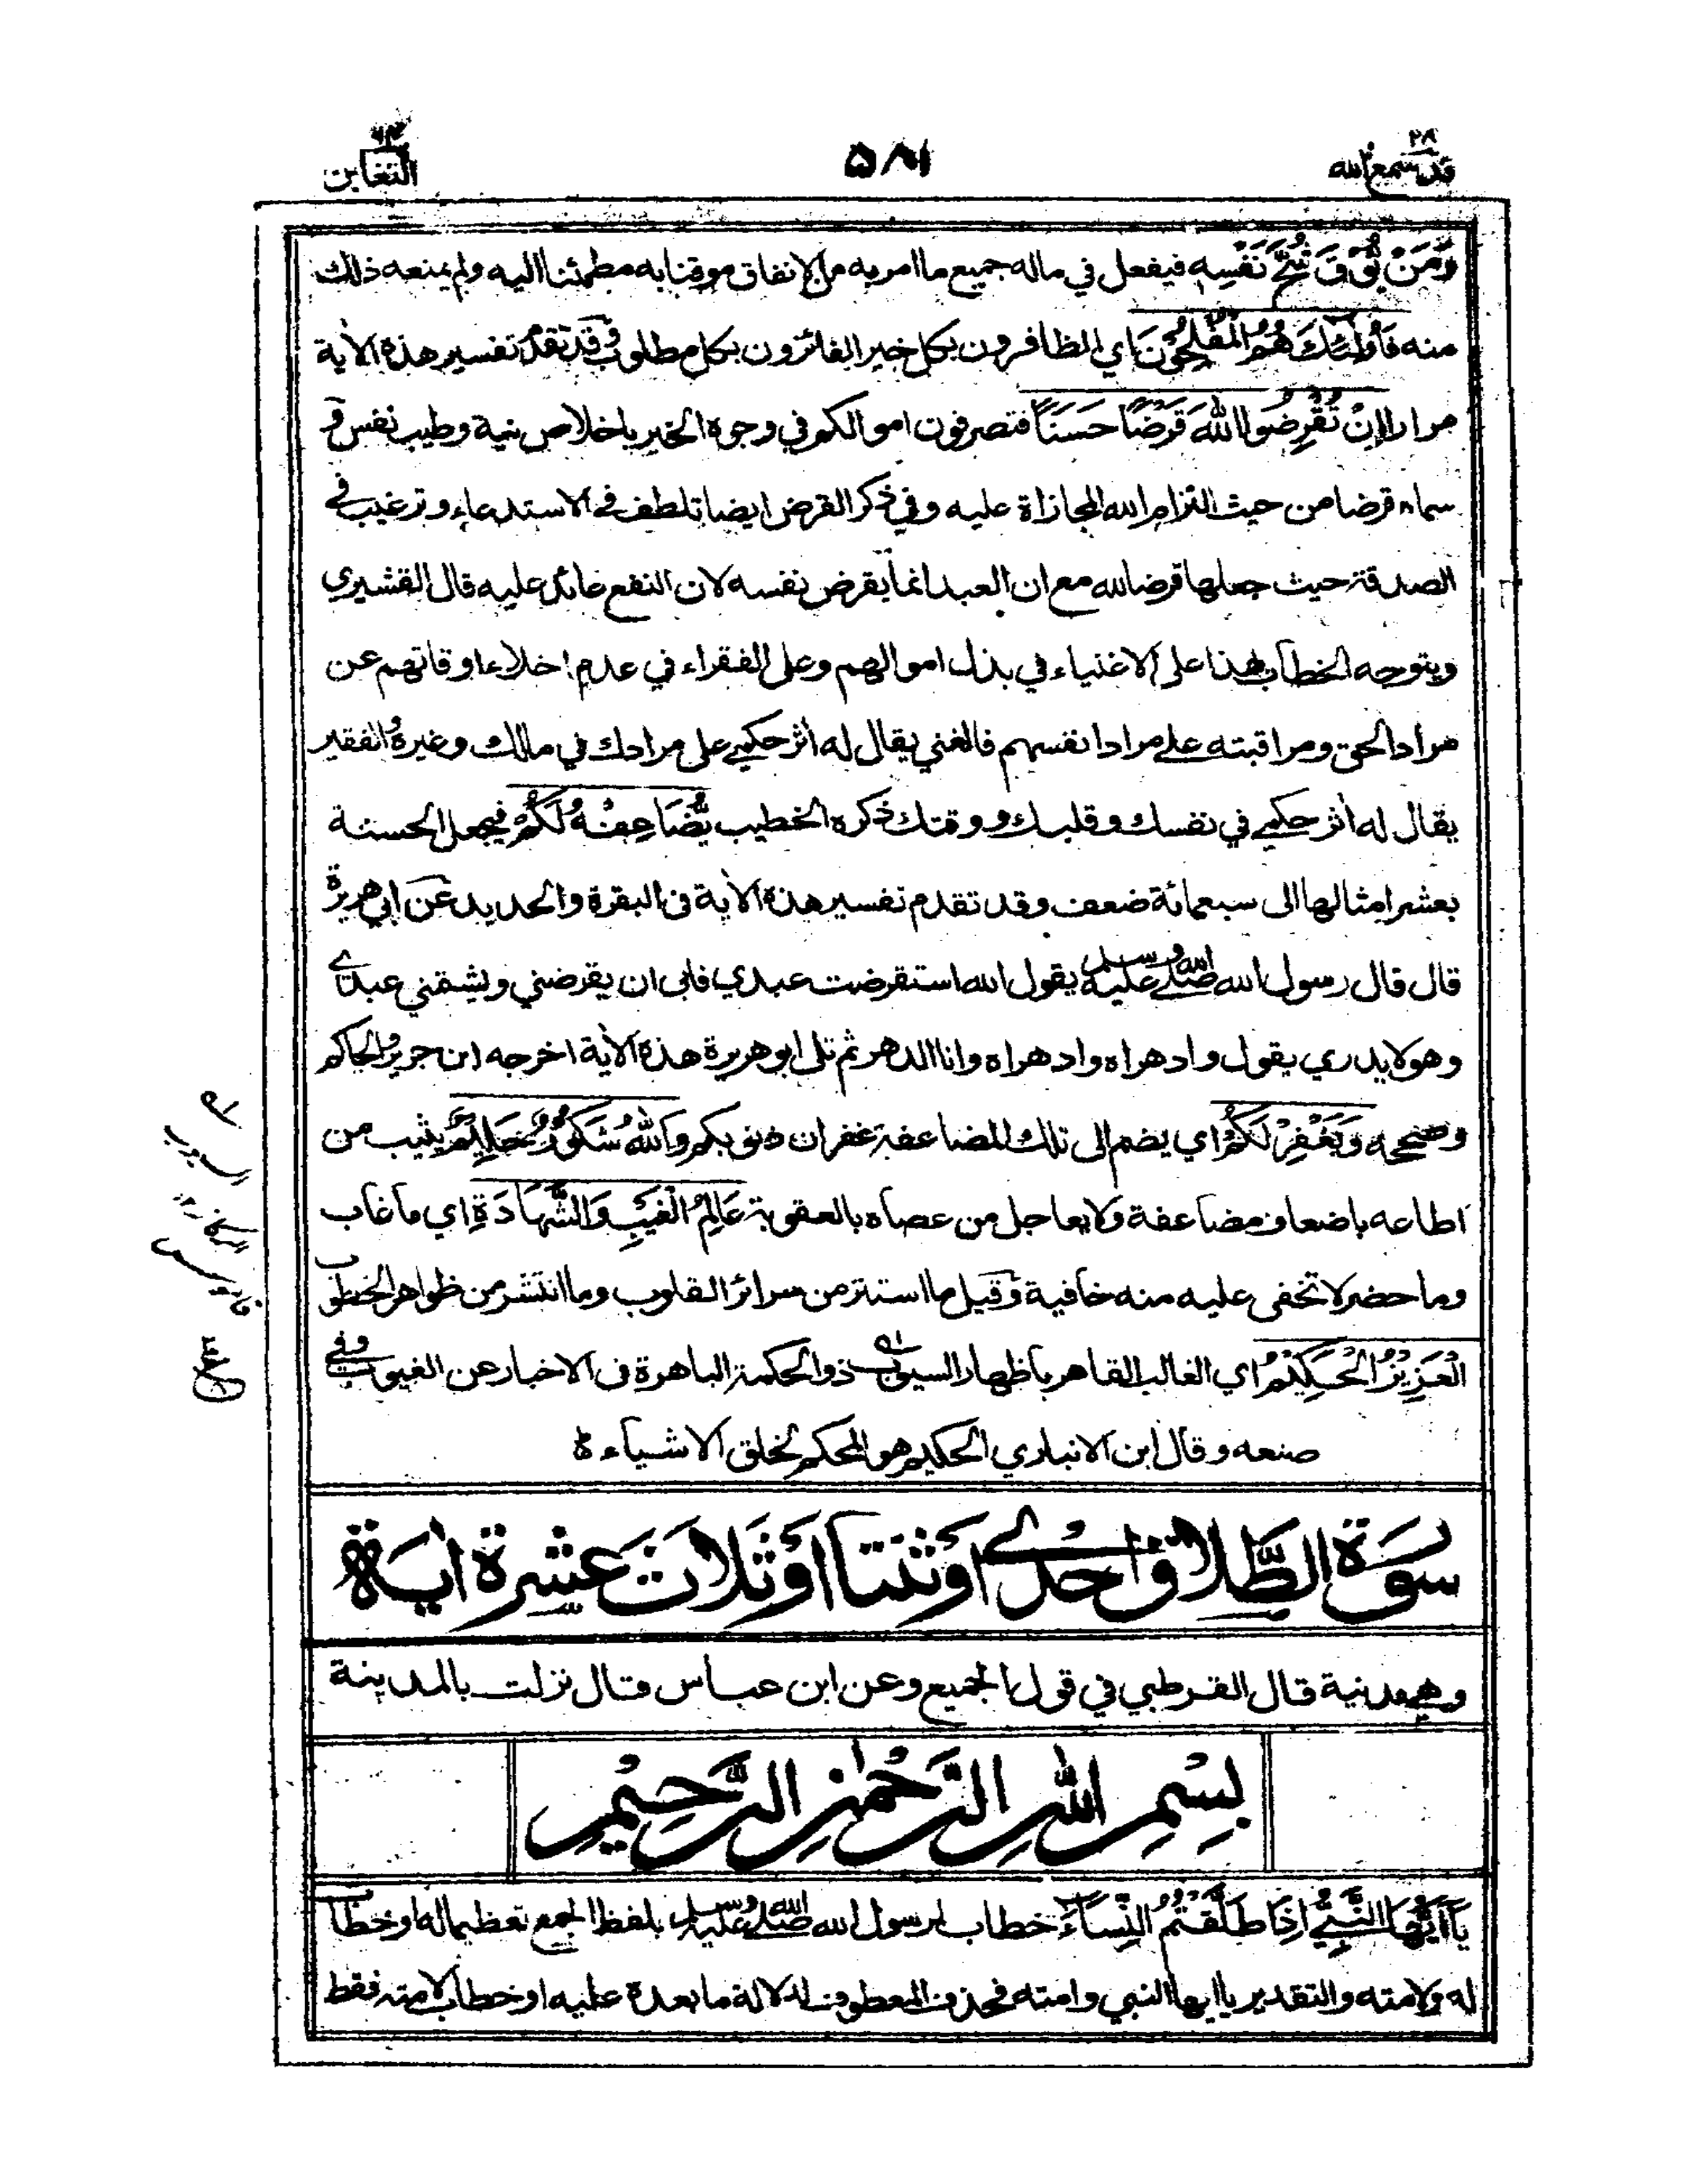 قد سمع الله ٢٨
٥٨١
التغابن ٦٤
وَمَنْ يُّوْقَ شُحَّ نَفْسِهٖ فيفعل في ماله جميع ما امر به من الانفاق موقنا به مطمئنا اليه ولم يمنعه ذلك
منه فَأُولٰٓئِكَ هُمُ الْمُفْلِحُوْنَ اي الظافرون بكل خير الفائزون بكل مطلوب وقد تقدم تفسير هذه الاٰية
مرارا اِنْ تُقْرِضُوا اللّٰهَ قَرْضًا حَسَنًا فتصرفون اموالكم في وجوه الخير باخلاص نية وطيب نفس و
سماه قرضا من حيث التزام الله المجازاة عليه وفي ذكر القرض ايضا تلطف في الاستدعاء وترغيب في
الصدقة حيث جعلها قرضا لله مع ان العبد انما يقرض نفسه لان النفع عائد عليه قال القشيري
ويتوجه الخطاب بهذا على الاغنياء في بذل اموالهم وعلى الفقراء في عدم اخلاء اوقاتهم عن
مراد الحق ومراقبته على مراد انفسهم فالغني يقال له أثر حكمي على مرادك في مالك وغيره والفقير
يقال له أثر حكمي في نفسك وقلبك ووقتك ذكره الخطيب يُّضَاعِفْهُ لَكُمْ فيجعل الحسنة
بعشر امثالها الى سبعمائة ضعف وقد تقدم تفسير هذه الاٰية في البقرة والحديد عن ابي هريرة
قال قال رسول الله صلى الله عليه وسلم يقول الله استقرضت عبدي فابى ان يقرضني ويشتمني عبدي
وهو لا يدري يقول وادهراه وادهراه وانا الدهر ثم تلى ابو هريرة هذه الاٰية اخرجه ابن جرير والحاكم
وصححه وَيَغْفِرْ لَكُمْ اي يضم الى تلك المضاعفة غفران ذنوبكم وَاللّٰهُ شَكُوْرٌ حَلِيْمٌ يثيب من
اطاعه باضعاف مضاعفة ولا يعاجل من عصاه بالعقوبة عَالِمُ الْغَيْبِ وَالشَّهَادَةِ اي ما غاب
وما حضر لا تخفى عليه منه خافية وقيل ما استتر من سرائر القلوب وما انتشر من ظواهر الخطوب
الْعَزِيْزُ الْحَكِيْمُ اي الغالب القاهر باظهار السيوب ذو الحكمة الباهرة في الاخبار عن الغيوب وفي
صنعه وقال ابن الانباري الحكيم هو المحكم لخلق الاشياء
سورة الطلاق احدى أو ثنتا أو ثلاث عشرة اٰية
وهي مدنية قال القرطبي في قول الجميع وعن ابن عباس قال نزلت بالمدينة
بِسْمِ اللّٰهِ الرَّحْمٰنِ الرَّحِيْمِ
يَآ اَيُّهَا النَّبِيُّ اِذَا طَلَّقْتُمُ النِّسَآءَ خطاب لرسول الله صلى الله عليه وسلم بلفظ الجمع تعظيما له او خطاب
له ولامته والتقدير يا ايها النبي وامته فحذف المعطوف لدلالة ما بعده عليه او خطاب لامته فقط